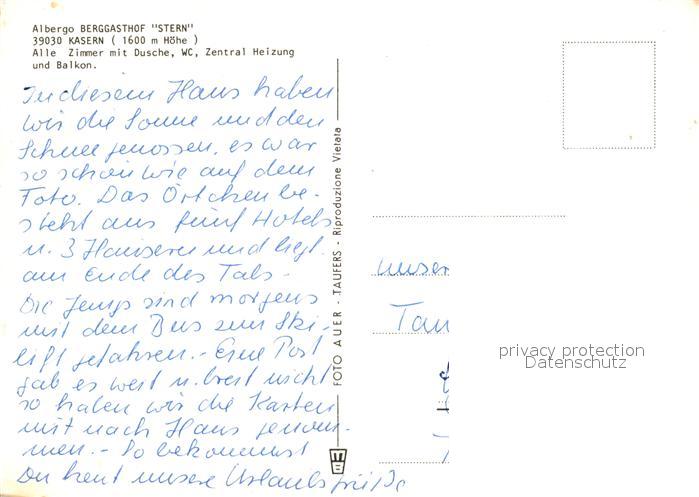 Albergo BERGGASTHOF "STERN"
39030 KASERN ( 1600 m Höhe )
Alle Zimmer mit Dusche, WC, Zentral Heizung
und Balkon.
In diesem Haus haben
wir die Sonne und den
Schnee genossen, es war
so schön wie auf dem
Foto. Das Örtchen be-
steht aus fünf Hotels
u. 3 Häusern und liegt
am Ende des Tals.
Die Jungs sind morgens
mit dem Bus zum Ski-
lift gefahren. - Eine Post
gab es weit u. breit nicht
so haben wir die Karten
mit nach Haus genom-
men. - So bekommst
Du heut unsere Urlaubsgrüße
FOTO AUER - TAUFERS - Riproduzione Vietata
unser
Tan
privacy protection
Datenschutz